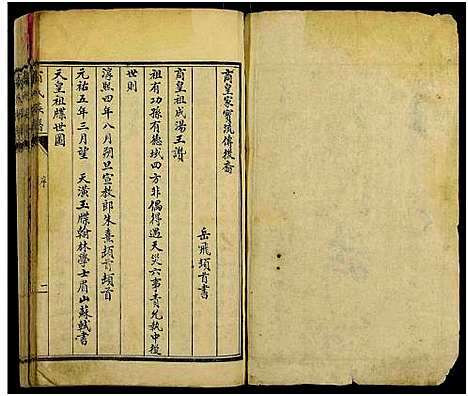 商皇家寶流傳枝裔
岳飛頓首書
商皇祖成湯王譜
祖有功孫有德域四方非偶得遇天災六事責允執中授
世則
淳熙四年八月朔旦宣教郎朱熹頓首頓首
元祐五年三月望 天潢玉牒翰林學士眉山蘇軾書
天皇祖牒世圖
序
二